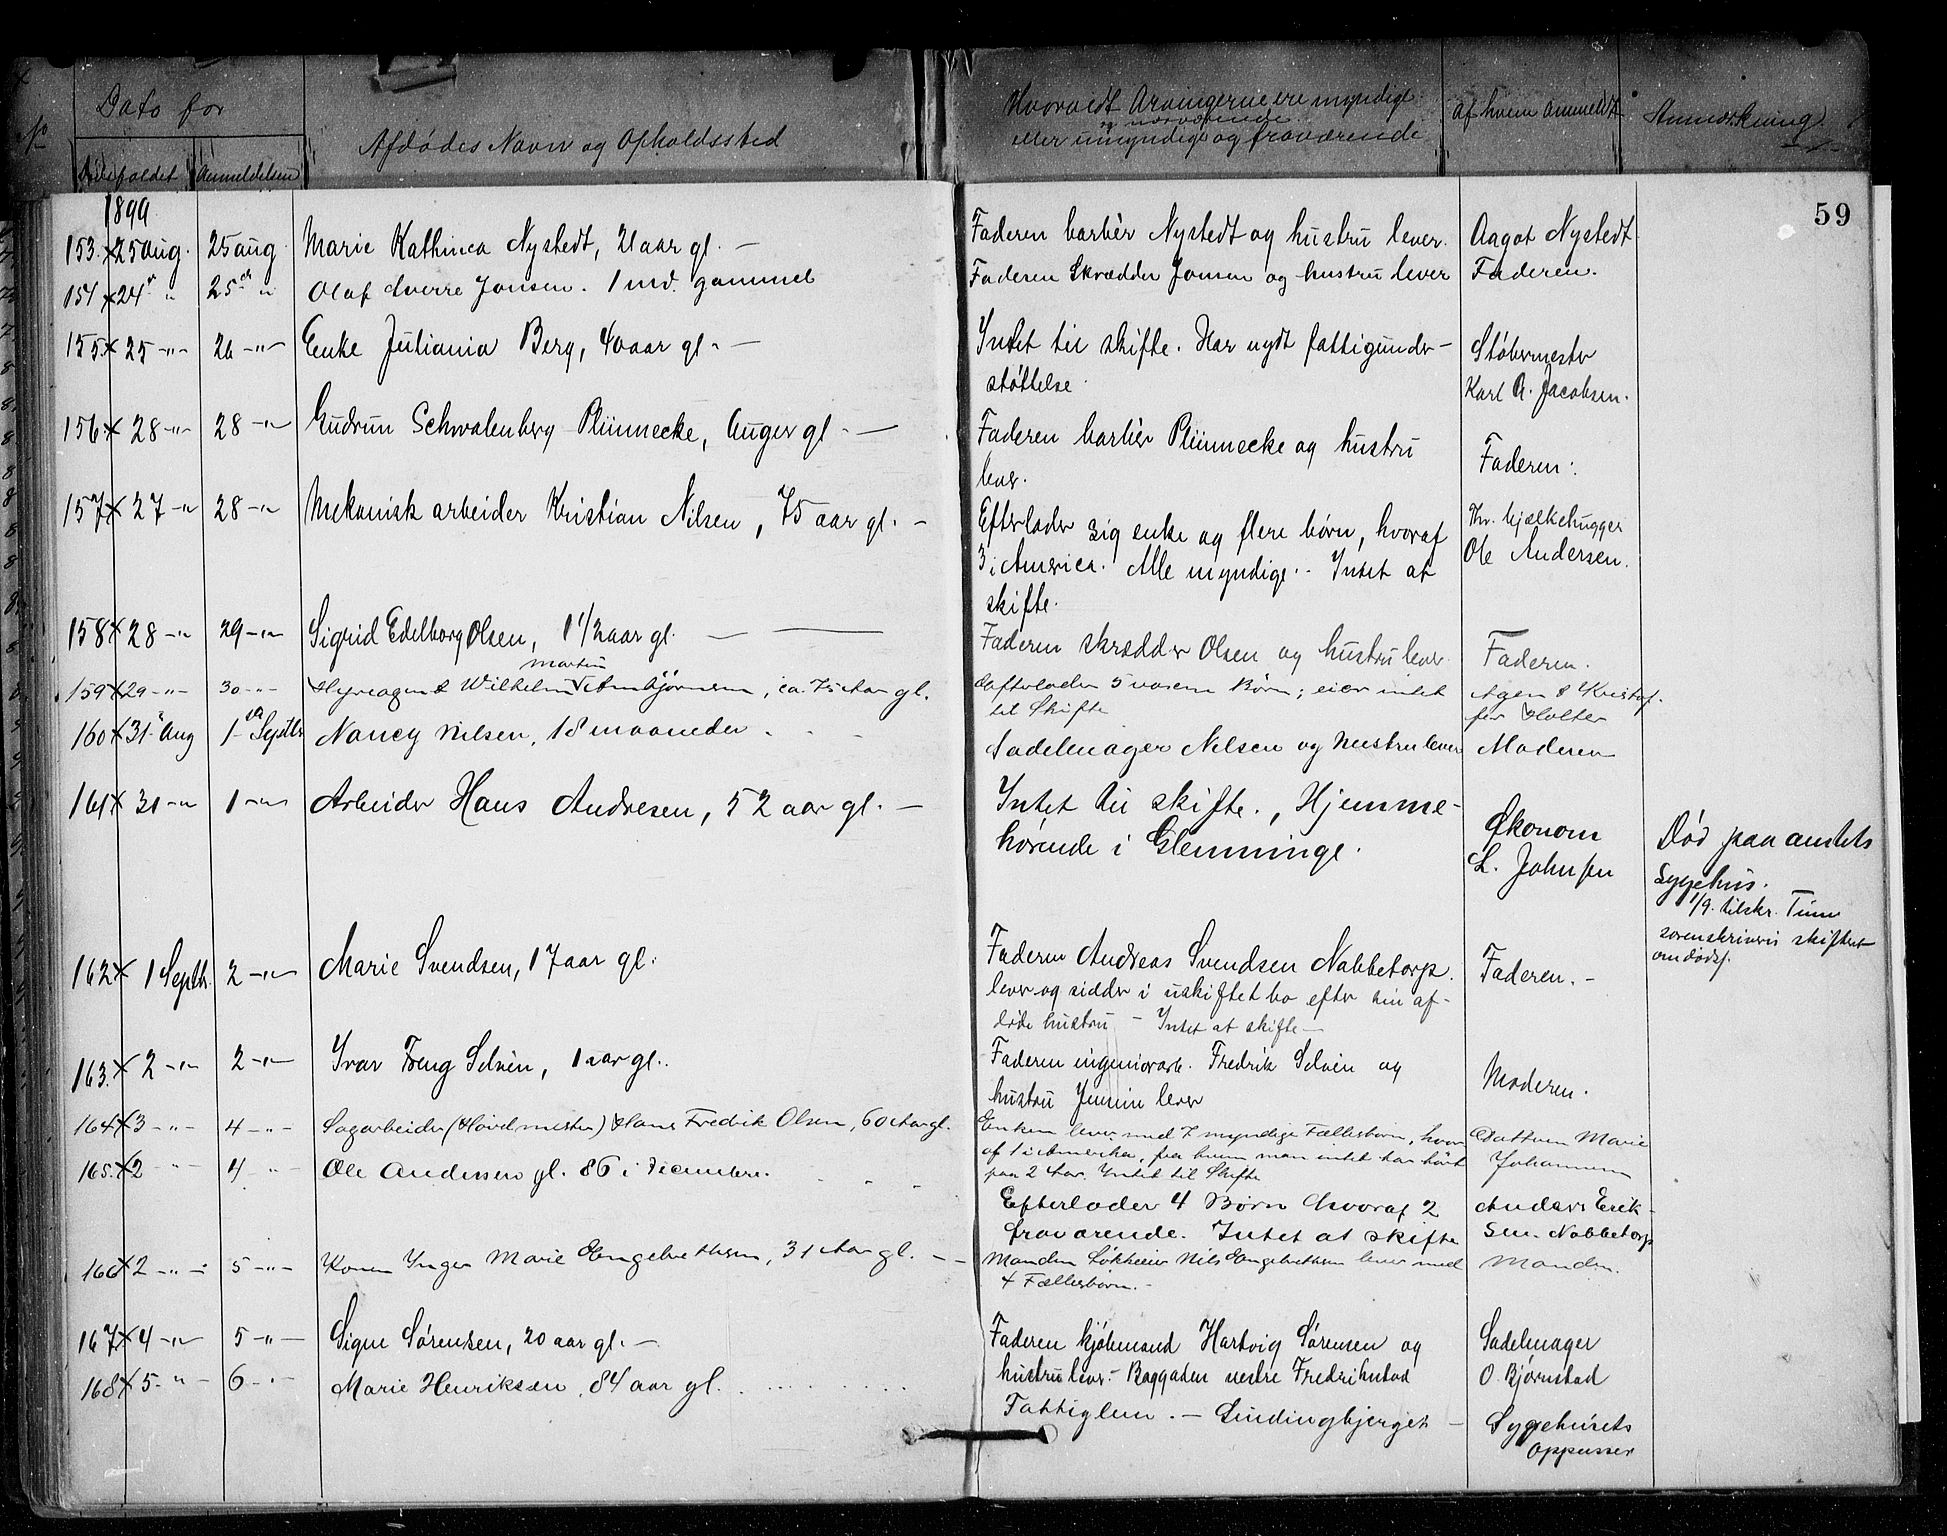 No
Dato for
Dødsfaldet
Anmeldelsen
Afdødes Navn og Opholdssted
Hvorvidt Arvingerne ere myndige
og nærværende
eller umyndige og fraværende
Af hvem anmeldt
Anmærkning.
59
1899
153. x 25 aug. 25 aug. Marie Kathinca Nystedt, 21 aar gl. — Faderen barbér Nystedt og hustru lever. Aagot Nystedt.
154 x 24 " 25 " Olaf Sverre Jonsen. 1 md. gammel Faderen Skrædder Jonsen og hustru lever Faderen.
155 x 25 -"- 26 -"- Enke Juliania Berg, 40 aar gl. — Intet til skifte. Har nydt fattigunder-
støttelse.
Støbermester
Karl A. Jacobsen.
156 x 28 -"- 28 -"- Gudrun Schwalenberg Plünnecke, 6 uger gl. — Faderen barbér Plünnecke og hustru
lever.
Faderen.
157 x 27 -"- 28 -"- Mekanisk arbeider Kristian Nilsen, 75 aar gl. — Efterlader sig enke og flere børn, hvoraf
3 i America. Alle myndige. Intet at
skifte.
Thv. bjælkehugger
Ole Andersen.
158 x 28 -"- 29 -"- Sigrid Edelborg Olsen, 1 1/2 aar gl. — Faderen skrædder Olsen og hustru lever. Faderen.
Martin
159 x 29 -"- 30 -"- Hyreagent Wilhelm Arnbjørnsen, ca. 75 Aar gl. Efterlader 5 voxne Børn; eier intet
til Skifte
Agent Kristof-
fer Holter
160 x 31 Aug 1 Septbr Nancy Nilsen, 18 maaneder Sadelmager Nilsen og Hustru lever Moderen
161 x 31 -"- 1 -"- Arbeider Hans Andresen, 52 aar gl. — Intet til skifte., Hjemme-
hørende i Glemminge.
Økonom
L. Johnsen
Død paa amtets
Sygehus.
1/9. tilskr. Tune
sorenskriveri skifteret
om dødsf.
162 x 1 Septbr. 2 -"- Marie Svendsen, 17 aar gl. Faderen Andreas Svendsen Nabbetorp.
lever og sidder i uskiftet bo efter sin af-
døde hustru — Intet at skifte —
Faderen. -
163. x 2 -"- 2 -"- Ivar Feng Selvin, 1 aar gl. Faderen ingeniorarb. Fredrik Selvin og
hustru Jensine lever
Moderen.
164 x 3 -"- 4 -"- Sagarbeider (Høvlmester) Hans Fredrik Olsen, 60 Aar gl. Enken lever med 7 myndige Fællesbørn, hvor
af 1 i Amerika, fra hvem man intet har hørt
paa 2 Aar. Intet til Skifte
Datteren Marie
Johannesen
165. x 2 -"- 4 -"- Ole Andersen gl. 86 i December. Efterlader 4 Børn hvoraf 2
fraværende. Intet at skifte
Anders Erik-
sen. Nabbetorp
166 x 2 -"- 5 -"- Konen Inger Marie Engebrethsen, 31 Aar gl. — Manden Løkkeeier Nils Engebrethsen lever med
4 Fællesbørn. -
Manden.
167 x 4 -"- 5 -"- Signe Sørensen, 20 aar gl. — Faderen kjøbmand Hartvig Sørensen og
hustru lever. - Baggaden vestre Fredrikstad
Sadelmager
O. Bjørnstad
168 x 5 -"- 6 -"- Marie Henriksen, 84 aar gl. Fattiglem. — Lindingbjerget —
Sygehusets
Oppasser